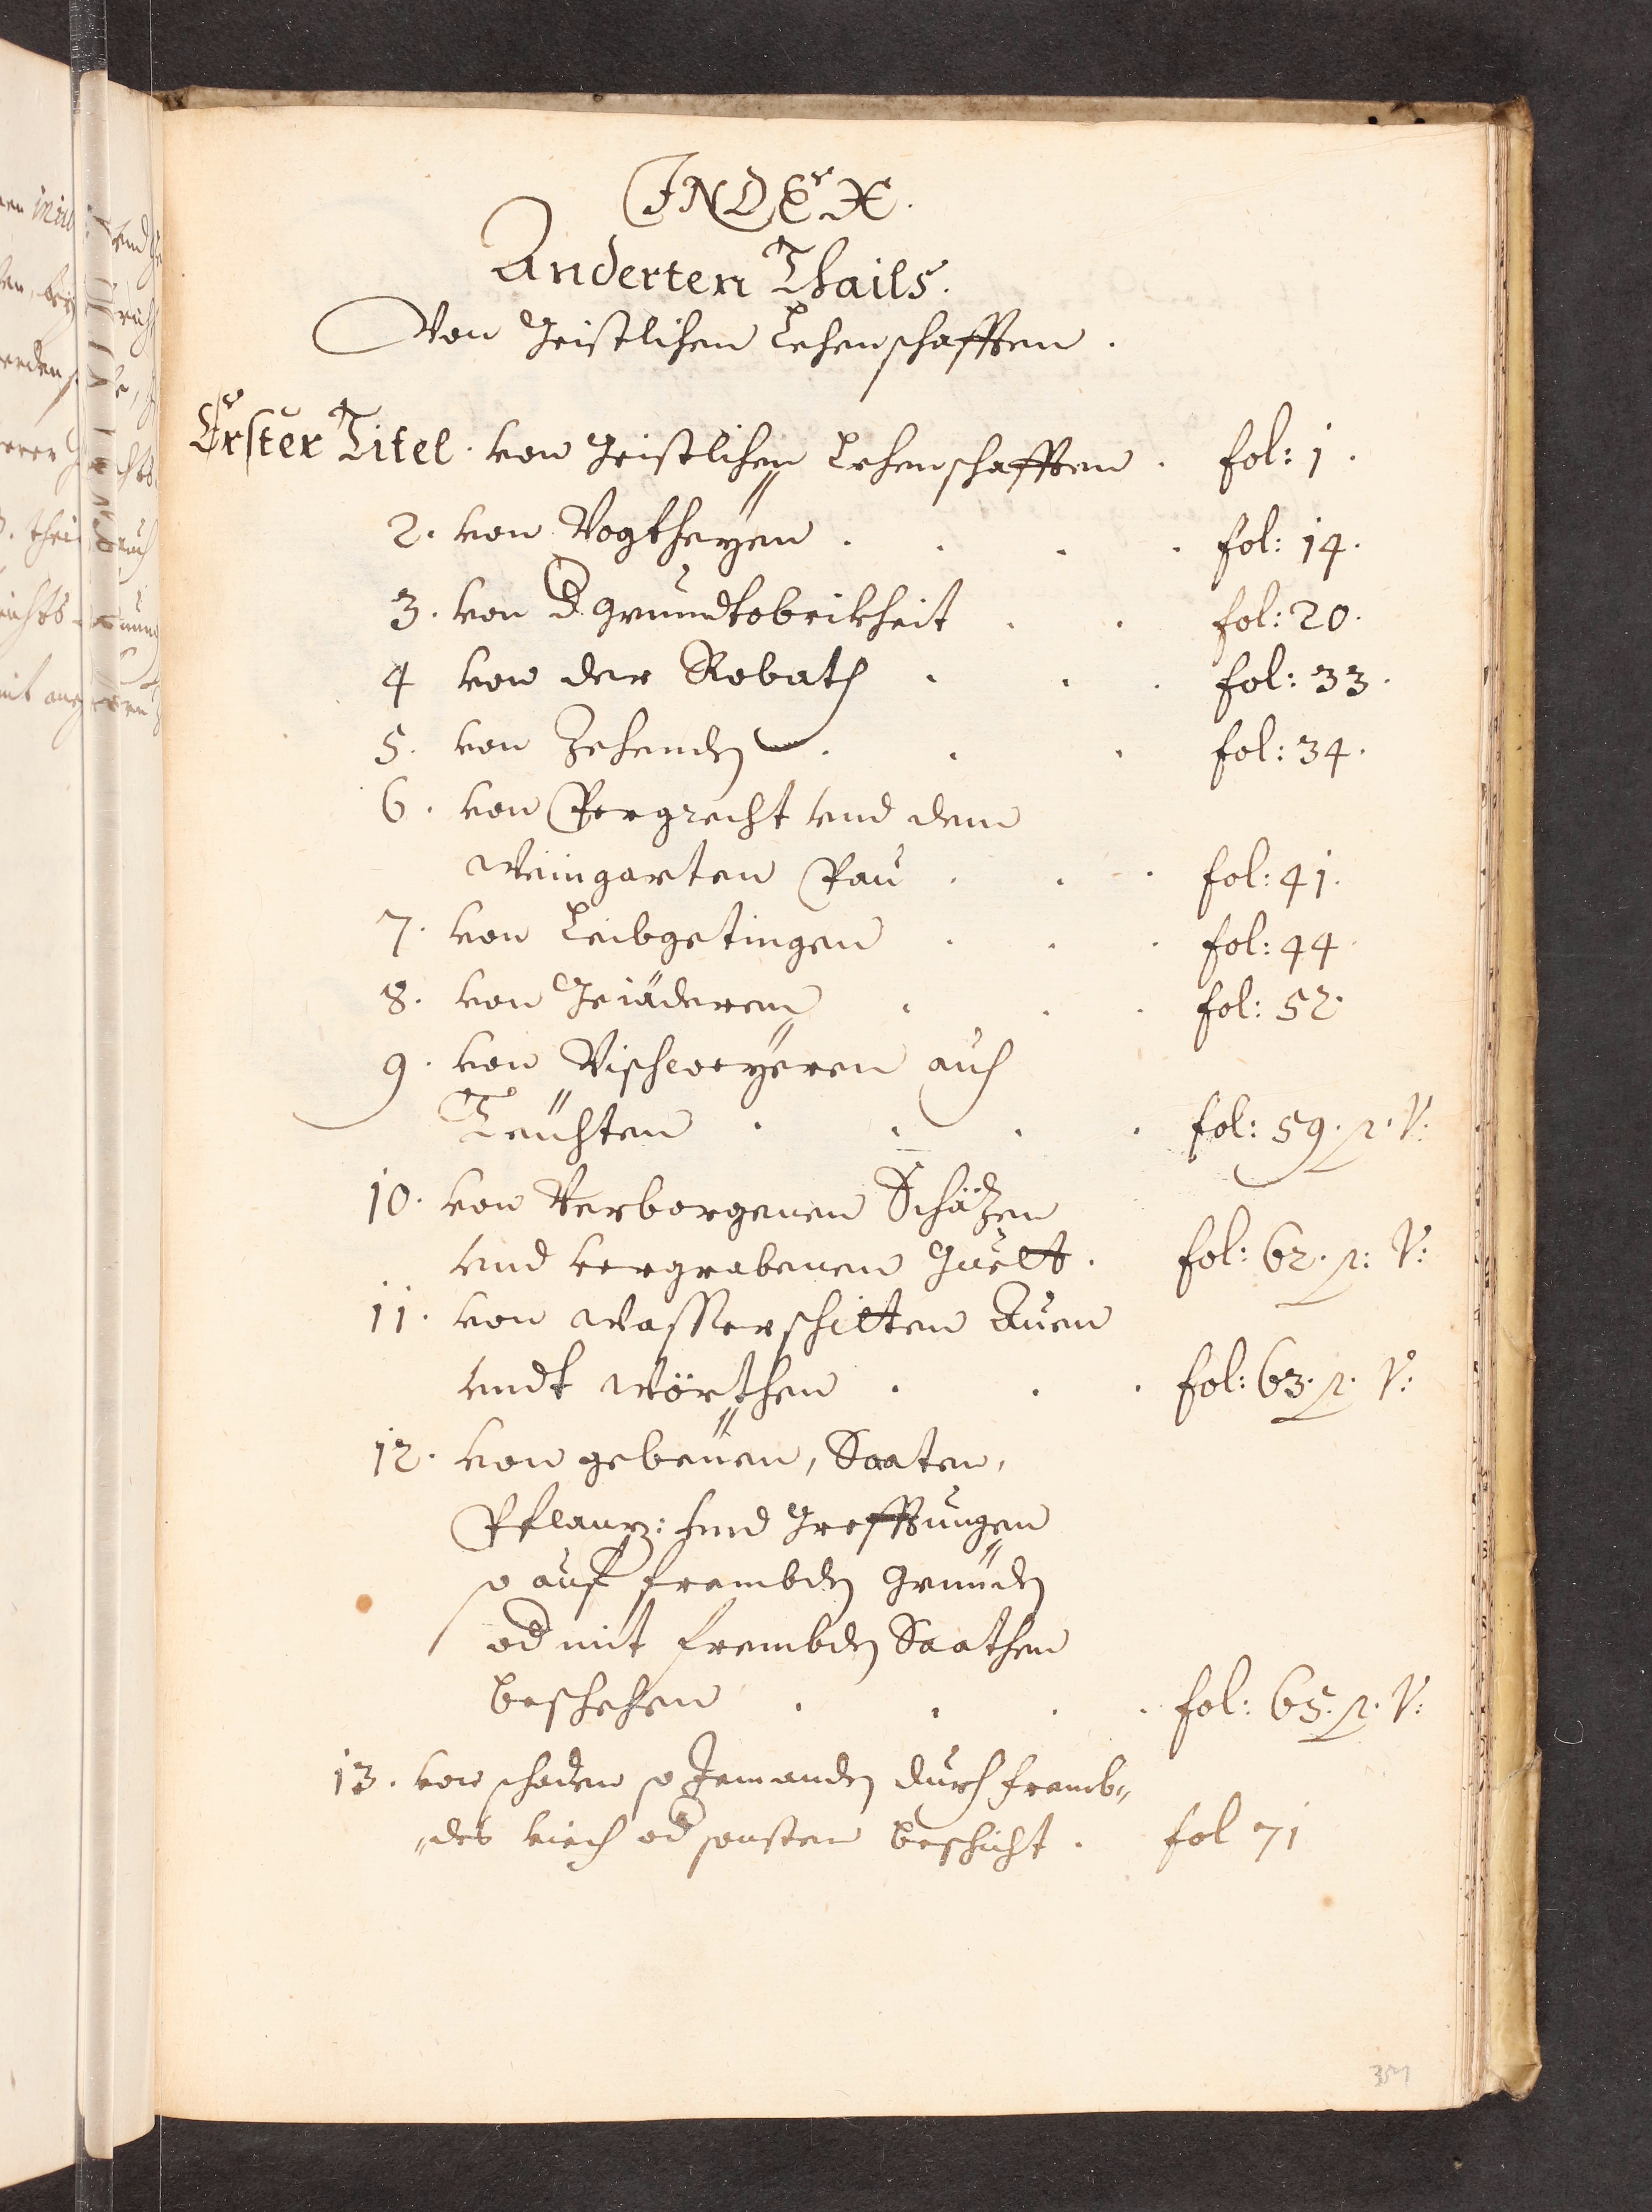 INDEX.
Anderten Thails.
Von Geistlichen Lehenschafften.
Erster Titel. von Geistlichen Lehenschafften. fol: 1.
2. von Vogtheyen. . . . fol: 14.
3. von d. Grundtobrikheit . . fol: 20.
4 von der Robath . . . fol: 33.
5. von Zehenden . . . fol: 34.
6. von Pergrecht vnd dem
Weingarten Pau . . . fol: 41.
7. von Leibgetingen . . . fol: 44.
8. von Geiäderen . . . fol: 52.
9. von Vischweyeren auch
Teüchten . . . . fol: 59. p. V:
10. von Verborgenen Schäzen
vnd vergrabenen Guelt. fol: 62. p: V:
11. von Wasserschitten Auen
vndt Wörthen . . . fol: 63. p. V:
12. von gebeüen, Saaten,
Pflanz: vnd Greffungen
so auf frembden Grunden
od mit frembden Saathen
beschehen . . . . fol: 65. p. V:
13. von schaden so Jemanden durch fremb„
„des Viech od sonsten beschicht. fol 71